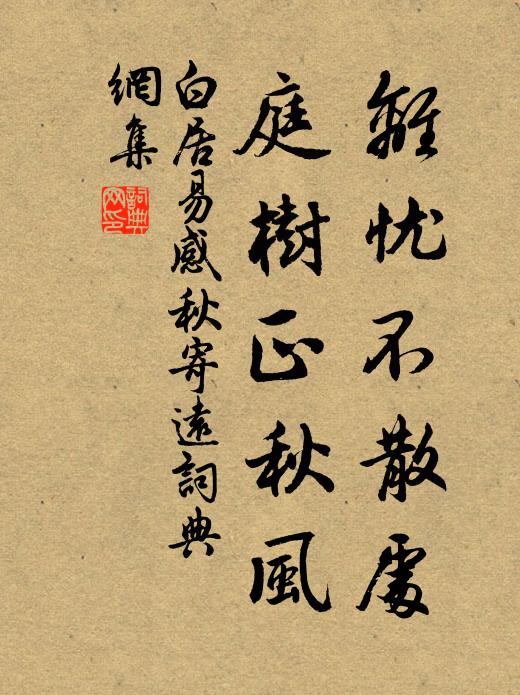 離忧不散處
庭樹正秋風
白居易感秋寄遠詞典
網集
詞典網印